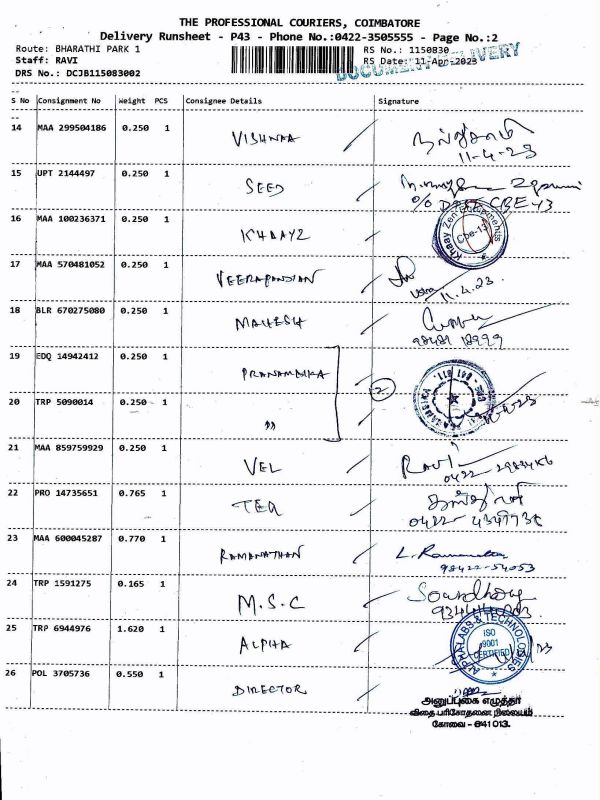 THE PROFESSIONAL COURIERS, COIMBATORE
Delivery Runsheet - P43 - Phone No.:0422-3505555 - Page No.:2
Route: BHARATHI PARK 1 RS No.: 1150830
Staff: RAVI RS Date: 11-Apr-2023
DOCUMENT DELIVERY
DRS No.: DCJB115083002
S No Consignment No Weight PCS Consignee Details Signature
14 MAA 299504186 0.250 1 VISHNAA
11-4-23
15 UPT 2144497 0.250 1 SEED
CBE 43
16 MAA 100236371 0.250 1 KHAAYZ
Khaay Zen Cbe-13
17 MAA 570481052 0.250 1 VEERAPANDIAN
11.4.23
18 BLR 670275080 0.250 1 MAHESH
19 EDQ 14942412 0.250 1 PRANAMBIKA
2
20 TRP 5090014 0.250 1 "
21 MAA 859759929 0.250 1 VEL RAVI
0422-
22 PRO 14735651 0.765 1 TEA
0422-
23 MAA 600045287 0.770 1 RAMANATHAN L.
98422-54053
24 TRP 1591275 0.165 1 M.S.C
25 TRP 6944976 1.620 1 ALPHA
ALPHA LABS & TECHNOLOGIES
ISO
9001
CERTIFIED
26 POL 3705736 0.550 1 DIRECTOR
அனுப்புகை எழுத்தர்
விதை பரிசோதனை நிலையம்
கோவை - 641 013.